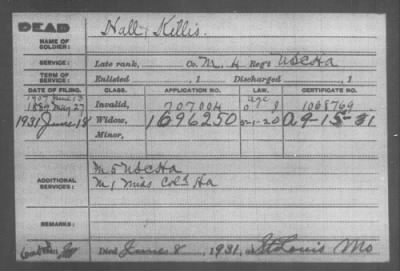 DEAD
NAME OF SOLDIER: Hall, Kellis.
SERVICE: Late rank, Co. M, Regt USCHA
TERM OF SERVICE: Enlisted , 1 Discharged , 1
DATE OF FILING. CLASS. APPLICATION NO. LAW. CERTIFICATE NO.
1907 June 13 age
1889 May 27 Invalid, 707004 1068769
1931 June 18 Widow, 1696250 5-1-20 A 9-15-31
Minor,
ADDITIONAL SERVICES: M 5 USCHA
M 1 Miss Cold HA
REMARKS:
Died June 8, 1931, at St Louis Mo